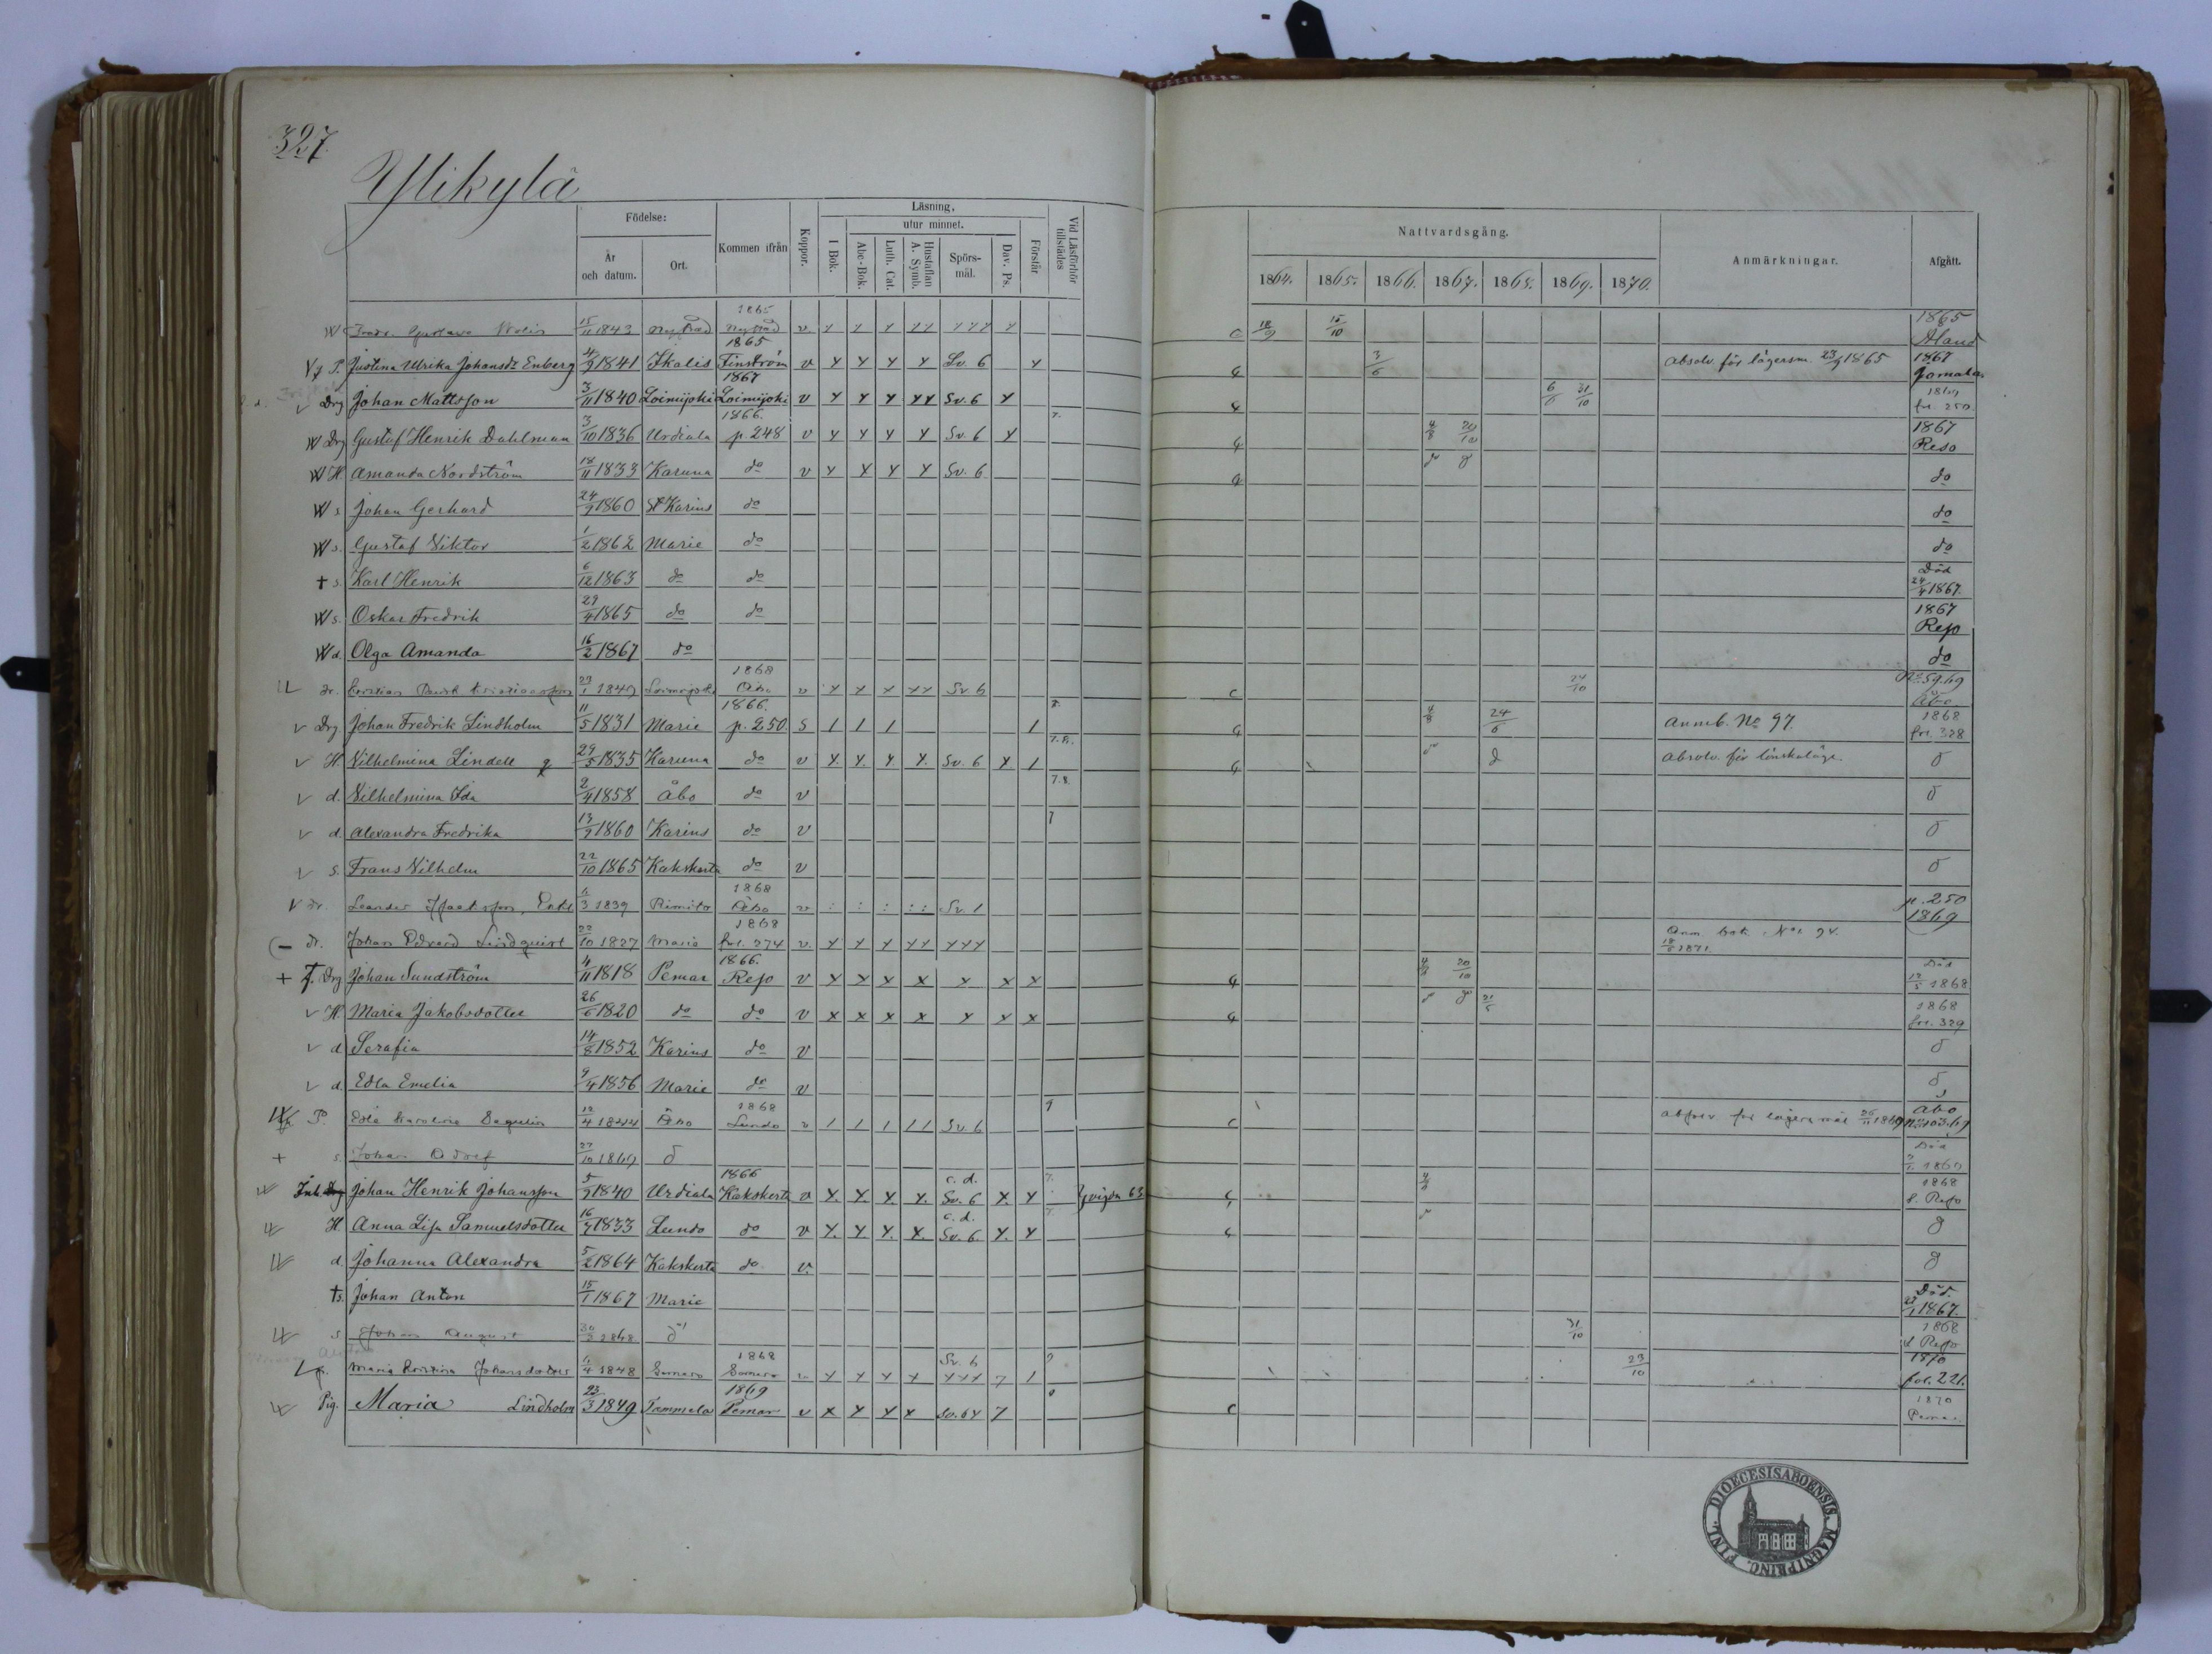 327.
Ylikylä
Födelse: Kommen ifrån Koppor. Läsning. Vid Läsförhör tillstädes Nattvardsgång. Anmärkningar. Afgått.
År och datum. Ort. I Bok. utur minnet. Förstår
Abc-Bok. Luth. Cat. Hustaflan A. Symb. Spörs-mål. Dav. Ps. 1864. 1865. 1866. 1867. 1868. 1869. 1870.
Gustava 15/11 1843 Nystad 1865 Nystad v c 18/9 15/10 1865 Åland
P. Justina Ulrika Johansdr Enberg 4/9 1841 Ikalis 1865 Finström v Y Y Y Y Sv. 6 Y 3/6 absolv. för lägersm. 23/9 1865 1867 Jomala
Drg Johan Mattsson 3/11 1840 Loimijoki 1867 Loimijoki v Y Y Y YY Sv. 6 Y 6/6 31/10 fol. 250.
Drg Gustaf Henrik Dahlman 3/10 1836 Urdiala 1866. p. 248 v Y Y Y Y Sv. 6 Y 4/8 20/10 1867 Reso
H. Amanda Nordström 18/11 1833 Karuna do v Y Y Y Y Sv. 6 do
s. Johan Gerhard 24/9 1860 St Karins do do
s. Gustaf Viktor 1/2 1862 Marie do do
† s. Karl Henrik 6/12 1863 do do Död 24/4 1867.
s. Oskar Fredrik 29/4 1865 do do 1867 Reso
d. Olga Amanda 16/2 1867 do do
dr. 23/1 1849 1868 Åbo v Y Y Y YY Sv. 6 c 24/10 No 59.69 Åbo
Drg Johan Fredrik Lindholm 11/5 1831 Marie 1866. p. 250. S 1 1 1 1 7. 4/8 24/6 Anmb. No 97. 1868 fol. 328
H. Vilhelmina Lindell 29/5 1835 Karuna do v Y. Y. Y Y. Sv. 6 Y 1 7.8. absolv. för lönskaläge. d
d. Vilhelmina Ida 2/4 1858 Åbo do v 7.8. d
d. Alexandra Fredrika 13/9 1860 Karins do v 7 d
s. Frans Vilhelm 22/10 1865 Kakskerta do v d
dr. Leander Isaaksson, 6/3 1839 Rimito 1868 Åbo v : : : : : Sv. 1 p. 250 1869
dr. Johan Edvard Lindqvist 22/10 1827 Marie 1868 fol. 274 v. Y Y Y YY YYY Anm. bok. No 94. 18/8 1871.
+ Drg Johan Sundström 4/11 1818 Pemar 1866. Reso v Y Y Y X X X X 4/8 20/10 Död 12/5 1868
H. Maria Jakobsdotter 26/6 1820 do do v X X X X Y Y X 21/5 1868 fol. 329
d. Serafia 14/8 1852 Karins do v d
d. Edla Emelia 9/4 1856 Marie do v d
P. Edla Karolina 12/4 1844 Åbo 1868 Lundo v 1 1 1 1 1 Sv. 6 9 c absolv. för lägersmål 26/11 1869 Åbo No 103.69
+ s. Johan Adolf 27/10 1869 d Död 1869
Inh. Johan Henrik Johansson 5/9 1840 Urdiala 1866 Kakskerta v Y. Y. Y. Y. c. d. Sv. 6 X Y 7. 63. 4/8 1868 f. Reso
H. Anna Lisa Samuelsdotter 16/7 1833 Lundo do v Y. Y. Y. X. c. d. Sv. 6 Y. Y d
d. Johanna Alexandra 5/2 1864 Kakskerta do v. d
† s. Johan Anton 15/1 1867 Marie Död. 1867.
s Johan August 30/3 1868 d 31/10 1868 f. Reso
p. Maria Kristina Johansdotter 6/4 1848 Somero 1868 Somero v Y Y Y Y Sv. 6 YYY 7 1 9 23/10 1870 fol. 221.
Pig. Maria Lindholm 23/3 1849 Tammela 1869 Pemar v X Y Y X Sv. 6 Y 7 c 1870 Pemar
DIOECESIS ABOENSIS. MAGNI PRINC. FINL.